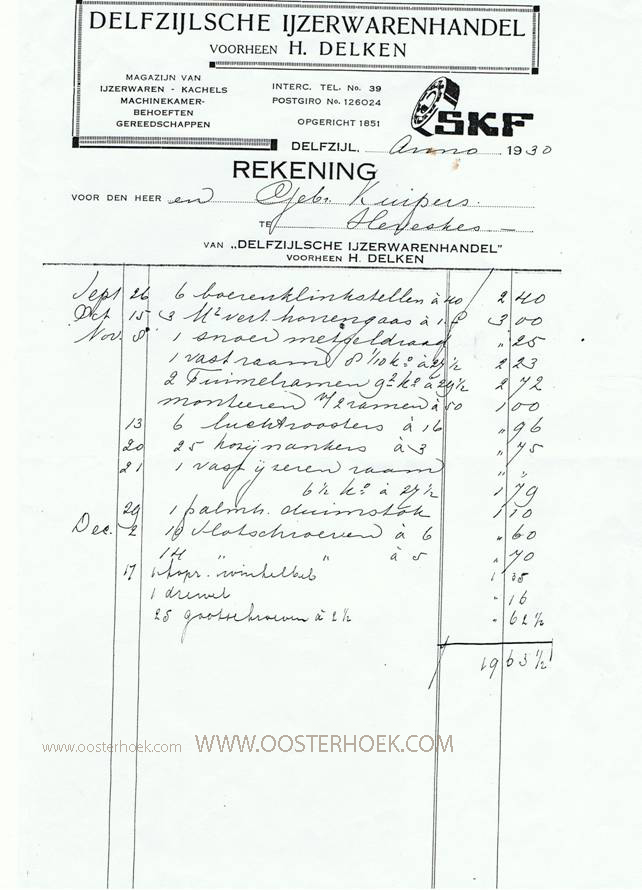 DELFZIJLSCHE IJZERWARENHANDEL
VOORHEEN H. DELKEN
MAGAZIJN VAN
IJZERWAREN - KACHELS
MACHINEKAMER-
BEHOEFTEN
GEREEDSCHAPPEN
INTERC. TEL. No. 39
POSTGIRO No. 126024
OPGERICHT 1851
SKF
DELFZIJL. Anno 1930
REKENING
VOOR DEN HEER en Gebr. Kuipers.
TE Heveskes
VAN „DELFZIJLSCHE IJZERWARENHANDEL"
VOORHEEN H. DELKEN
Sept 26 6 boerenklinkstellen à 40 2 40
Oct 15 3 M² vert horrengaas à 3 00
Nov. 8 1 snoer metseldraad " 25
1 vast raam 8 1/10 ko à 27 1/2 2 23
2 Tuimelramen 9² ko à 29 1/2 2 72
monteeren v/2 ramen à 50 1 00
13 6 luchtroosters à 16 " 96
20 25 kozijnankers à 3 " 75
21 1 vast ijzeren raam " "
6 1/2 ko à 27 1/2 1 79
29 1 palmh. duimstok 1 10
Dec. 2 10 slotschroeven à 6 " 60
14 " " à 5 " 70
17 1 kopr. winkelbel 1 35
1 drevel " 16
25 gootschroeven à 2 1/2 " 62 1/2
19 63 1/2
www.oosterhoek.com WWW.OOSTERHOEK.COM